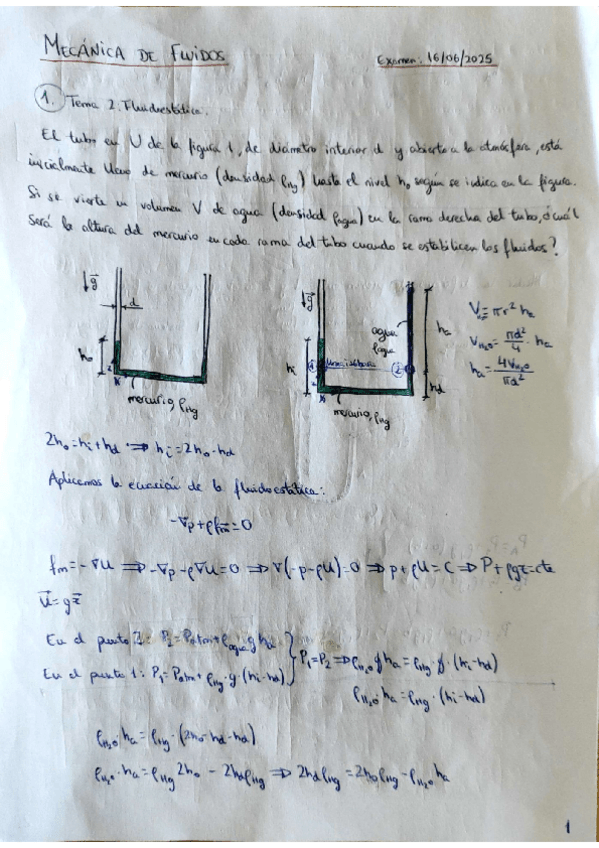 MECÁNICA DE FLUIDOS
Examen: 16/06/2025
1. Tema 2: Fluidoestática.
El tubo en U de la figura 1, de diámetro interior d y abierto a la atmósfera, está
inicialmente lleno de mercurio (densidad ρHg) hasta el nivel h₀ según se indica en la figura.
Si se vierte un volumen V de agua (densidad ρagua) en la rama derecha del tubo, ¿cuál
será la altura del mercurio en cada rama del tubo cuando se estabilicen los fluidos?
g
d
h₀
mercurio, ρHg
g
agua
ρagua
hₐ
hi
1
2
hd
mercurio, ρHg
V = πr² hₐ
V_H₂O = πd²/4 · hₐ
hₐ = 4V_H₂O/πd²
2h₀ = hi + hd ⇒ hi = 2h₀ - hd
Aplicamos la ecuación de la fluidoestática:
-∇p + ρfm = 0
fm = -∇U ⇒ -∇p - ρ∇U = 0 ⇒ ∇(-p - ρU) = 0 ⇒ p + ρU = C ⇒ P + ρgz = cte
U = gz
En el punto 2: P₂ = Patm + ρagua g hₐ
En el punto 1: P₁ = Patm + ρHg · g (hi - hd)
P₁ = P₂ ⇒ ρH₂O g hₐ = ρHg g · (hi - hd)
ρH₂O · hₐ = ρHg · (hi - hd)
ρH₂O · hₐ = ρHg · (2h₀ - hd - hd)
ρH₂O · hₐ = ρHg 2h₀ - 2hd ρHg ⇒ 2hd ρHg = 2h₀ ρHg - ρH₂O hₐ
1